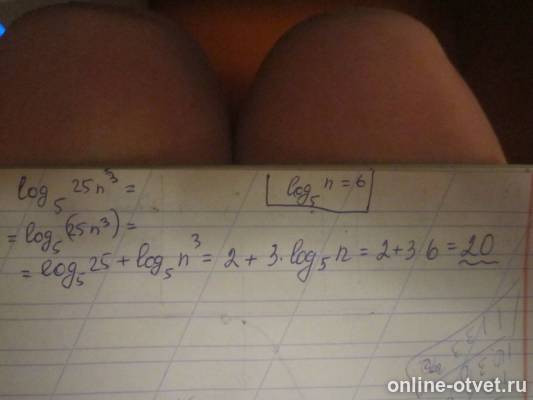 log₅ 25n³ =
log₅ n = 6
= log₅(25n³) =
= log₅25 + log₅n³ = 2 + 3·log₅n = 2+3·6 = 20
online-otvet.ru